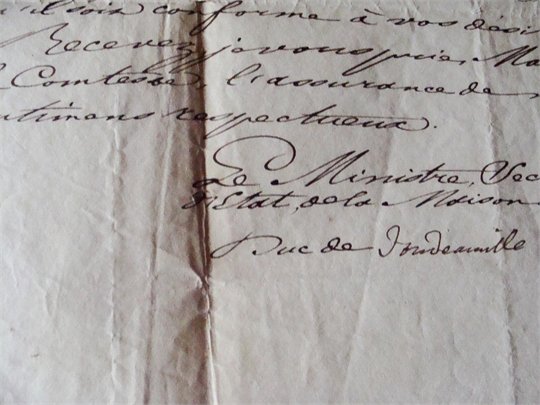 il soit conforme à vos dési
Recevez, je vous prie, Ma
Comtesse, l'assurance de
ntimens respectueux.
Le Ministre, Sec
d'Etat, de la Maison
Duc de Doudeauville